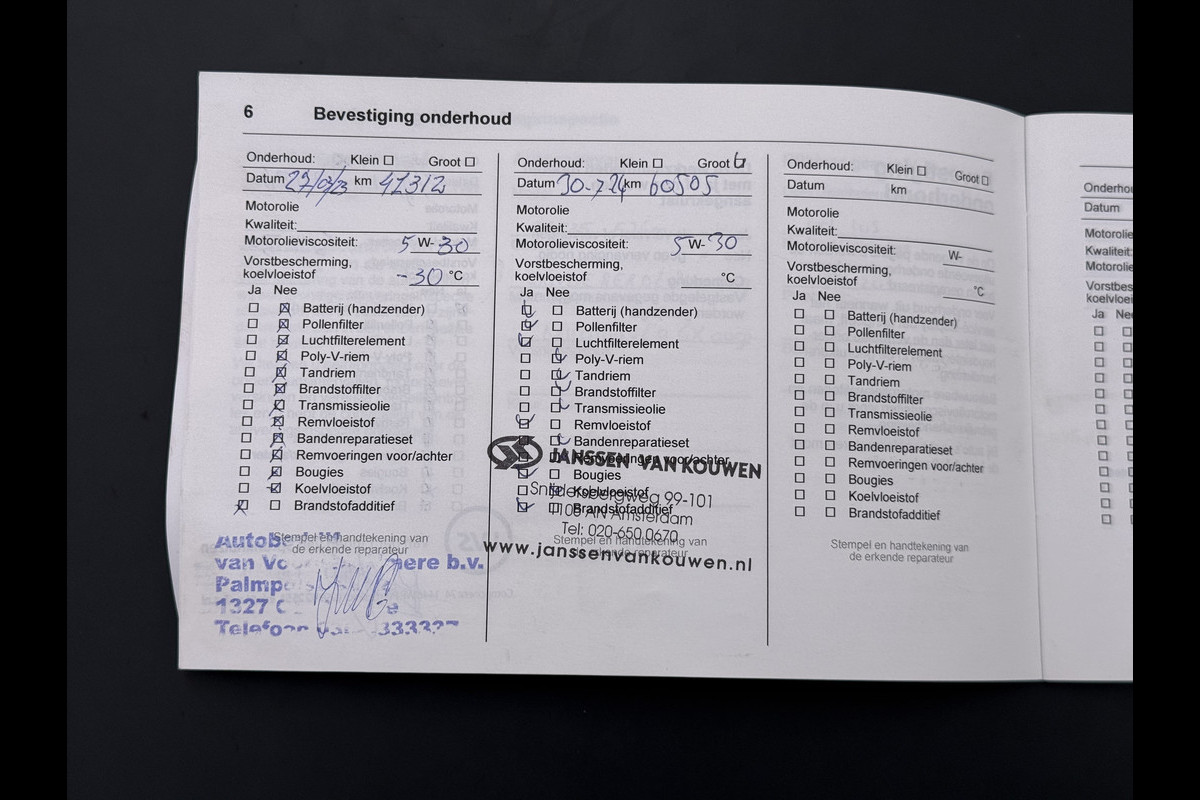 6 Bevestiging onderhoud
Onderhoud: Klein Groot
Datum 27/03/23 km 41312
Motorolie
Kwaliteit:
Motorolieviscositeit: 5 W- 30
Vorstbescherming,
koelvloeistof -30 °C
Ja Nee
Batterij (handzender)
Pollenfilter
Luchtfilterelement
Poly-V-riem
Tandriem
Brandstoffilter
Transmissieolie
Remvloeistof
Bandenreparatieset
Remvoeringen voor/achter
Bougies
Koelvloeistof
Brandstofadditief
Stempel en handtekening van
de erkende reparateur
van ere b.v.
1327
Onderhoud: Klein Groot
Datum 30-7-24 km 60505
Motorolie
Kwaliteit:
Motorolieviscositeit: 5 W- 30
Vorstbescherming,
koelvloeistof °C
Ja Nee
Batterij (handzender)
Pollenfilter
Luchtfilterelement
Poly-V-riem
Tandriem
Brandstoffilter
Transmissieolie
Remvloeistof
Bandenreparatieset
Remvoeringen voor/achter
JANSSEN VAN KOUWEN
Bougies
Koelvloeistof
Snijdersbergweg 99-101
Brandstofadditief
1105 AN Amsterdam
Tel: 020-650 0670
Stempel en handtekening van
de erkende reparateur
www.janssenvankouwen.nl
Onderhoud: Klein Groot
Datum km
Motorolie
Kwaliteit:
Motorolieviscositeit: W-
Vorstbescherming,
koelvloeistof °C
Ja Nee
Batterij (handzender)
Pollenfilter
Luchtfilterelement
Poly-V-riem
Tandriem
Brandstoffilter
Transmissieolie
Remvloeistof
Bandenreparatieset
Remvoeringen voor/achter
Bougies
Koelvloeistof
Brandstofadditief
Stempel en handtekening van
de erkende reparateur
Onderho
Datum
Motorolie
Kwaliteit:
Motorolie
Vorstbes
koelvloei
Ja Nee